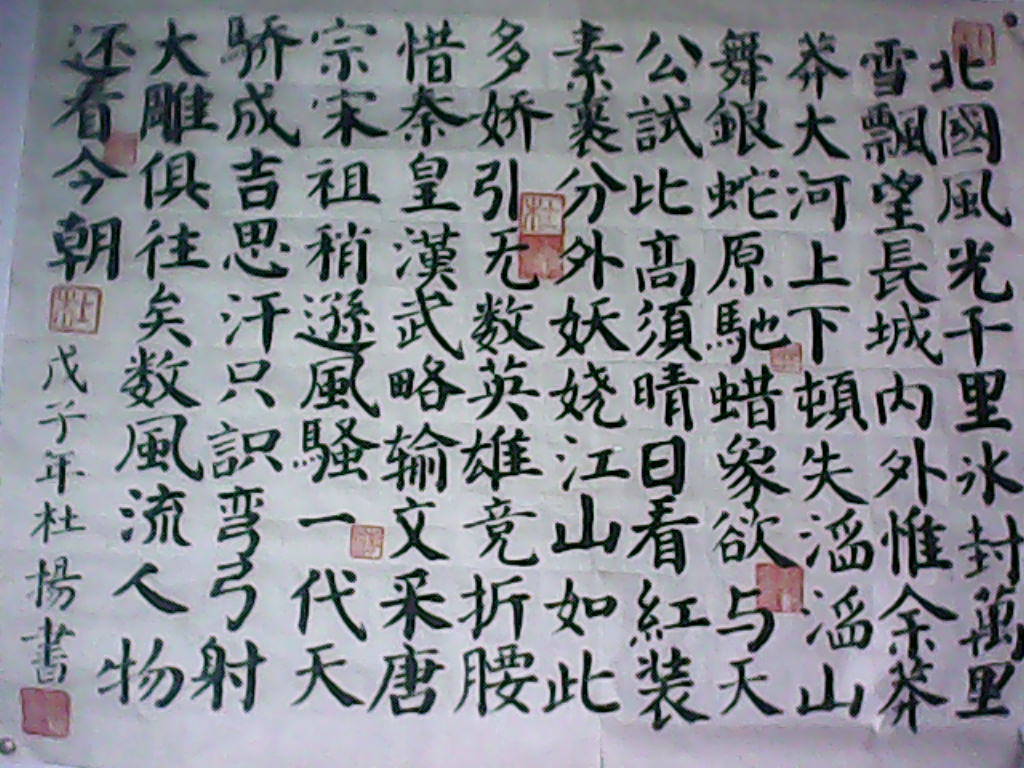 北國風光千里氷封萬里
雪飄望長城内外惟余莽
莽大河上下頓失滔滔山
舞銀蛇原馳蜡象欲与天
公試比高須晴日看紅装
素裹分外妖娆江山如此
多娇引无数英雄竞折腰
惜秦皇漢武略输文采唐
宗宋祖稍遜風騷一代天
骄成吉思汗只識弯弓射
大雕俱往矣数風流人物
还看今朝
杜
戊子年杜揚書
杜